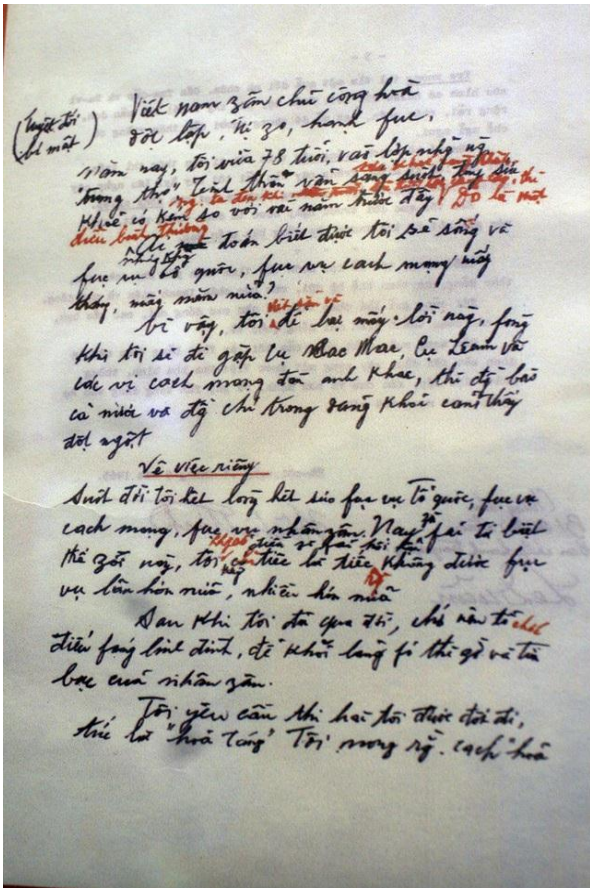 (Tuyệt đối
bí mật)
Việt nam zân chủ cộng hoà
độc lập, tự zo, hạnh fúc,
Năm nay, tôi vừa 78 tuổi, vào lớp nhữg ng
"trung thọ" Tinh thần vẫn sáng suốt, tuy sức
khoẻ có kém so với vài năm trước đây. Đó là một
điều bình thường
Ai mà đoán biết được tôi sẽ sống và
fục vụ tổ quốc, fục vụ cách mạng mấy
tháng, mấy năm nữa?
Vì vậy, tôi viết sẵn và để lại mấy lời này, fòng
khi tôi sẽ đi gặp cụ Các Mác, cụ Lênin và
các vị cách mạng đàn anh khác, thì đg bào
cả nước và đg chí trong đảng khỏi cảm thấy
đột ngột
Về việc riêng
Suốt đời tôi hết lòng hết sức fục vụ Tổ quốc, fục vụ
cách mạng, fục vụ nhân zân. Nay zù fải từ biệt
thế zới này, tôi không có điều gì fải hối hận
chỉ tiếc là tiếc không được fục
vụ lâu hơn nữa, nhiều hơn nữa
Sau khi tôi đã qua đời, chớ nên tổ chức
điếu fúng linh đình, để khỏi lãng fí thì giờ và tiền
bạc của nhân zân.
Tôi yêu cầu thi hài tôi được đốt đi,
tức là "hoả táng" Tôi mong rg. cách "hoả